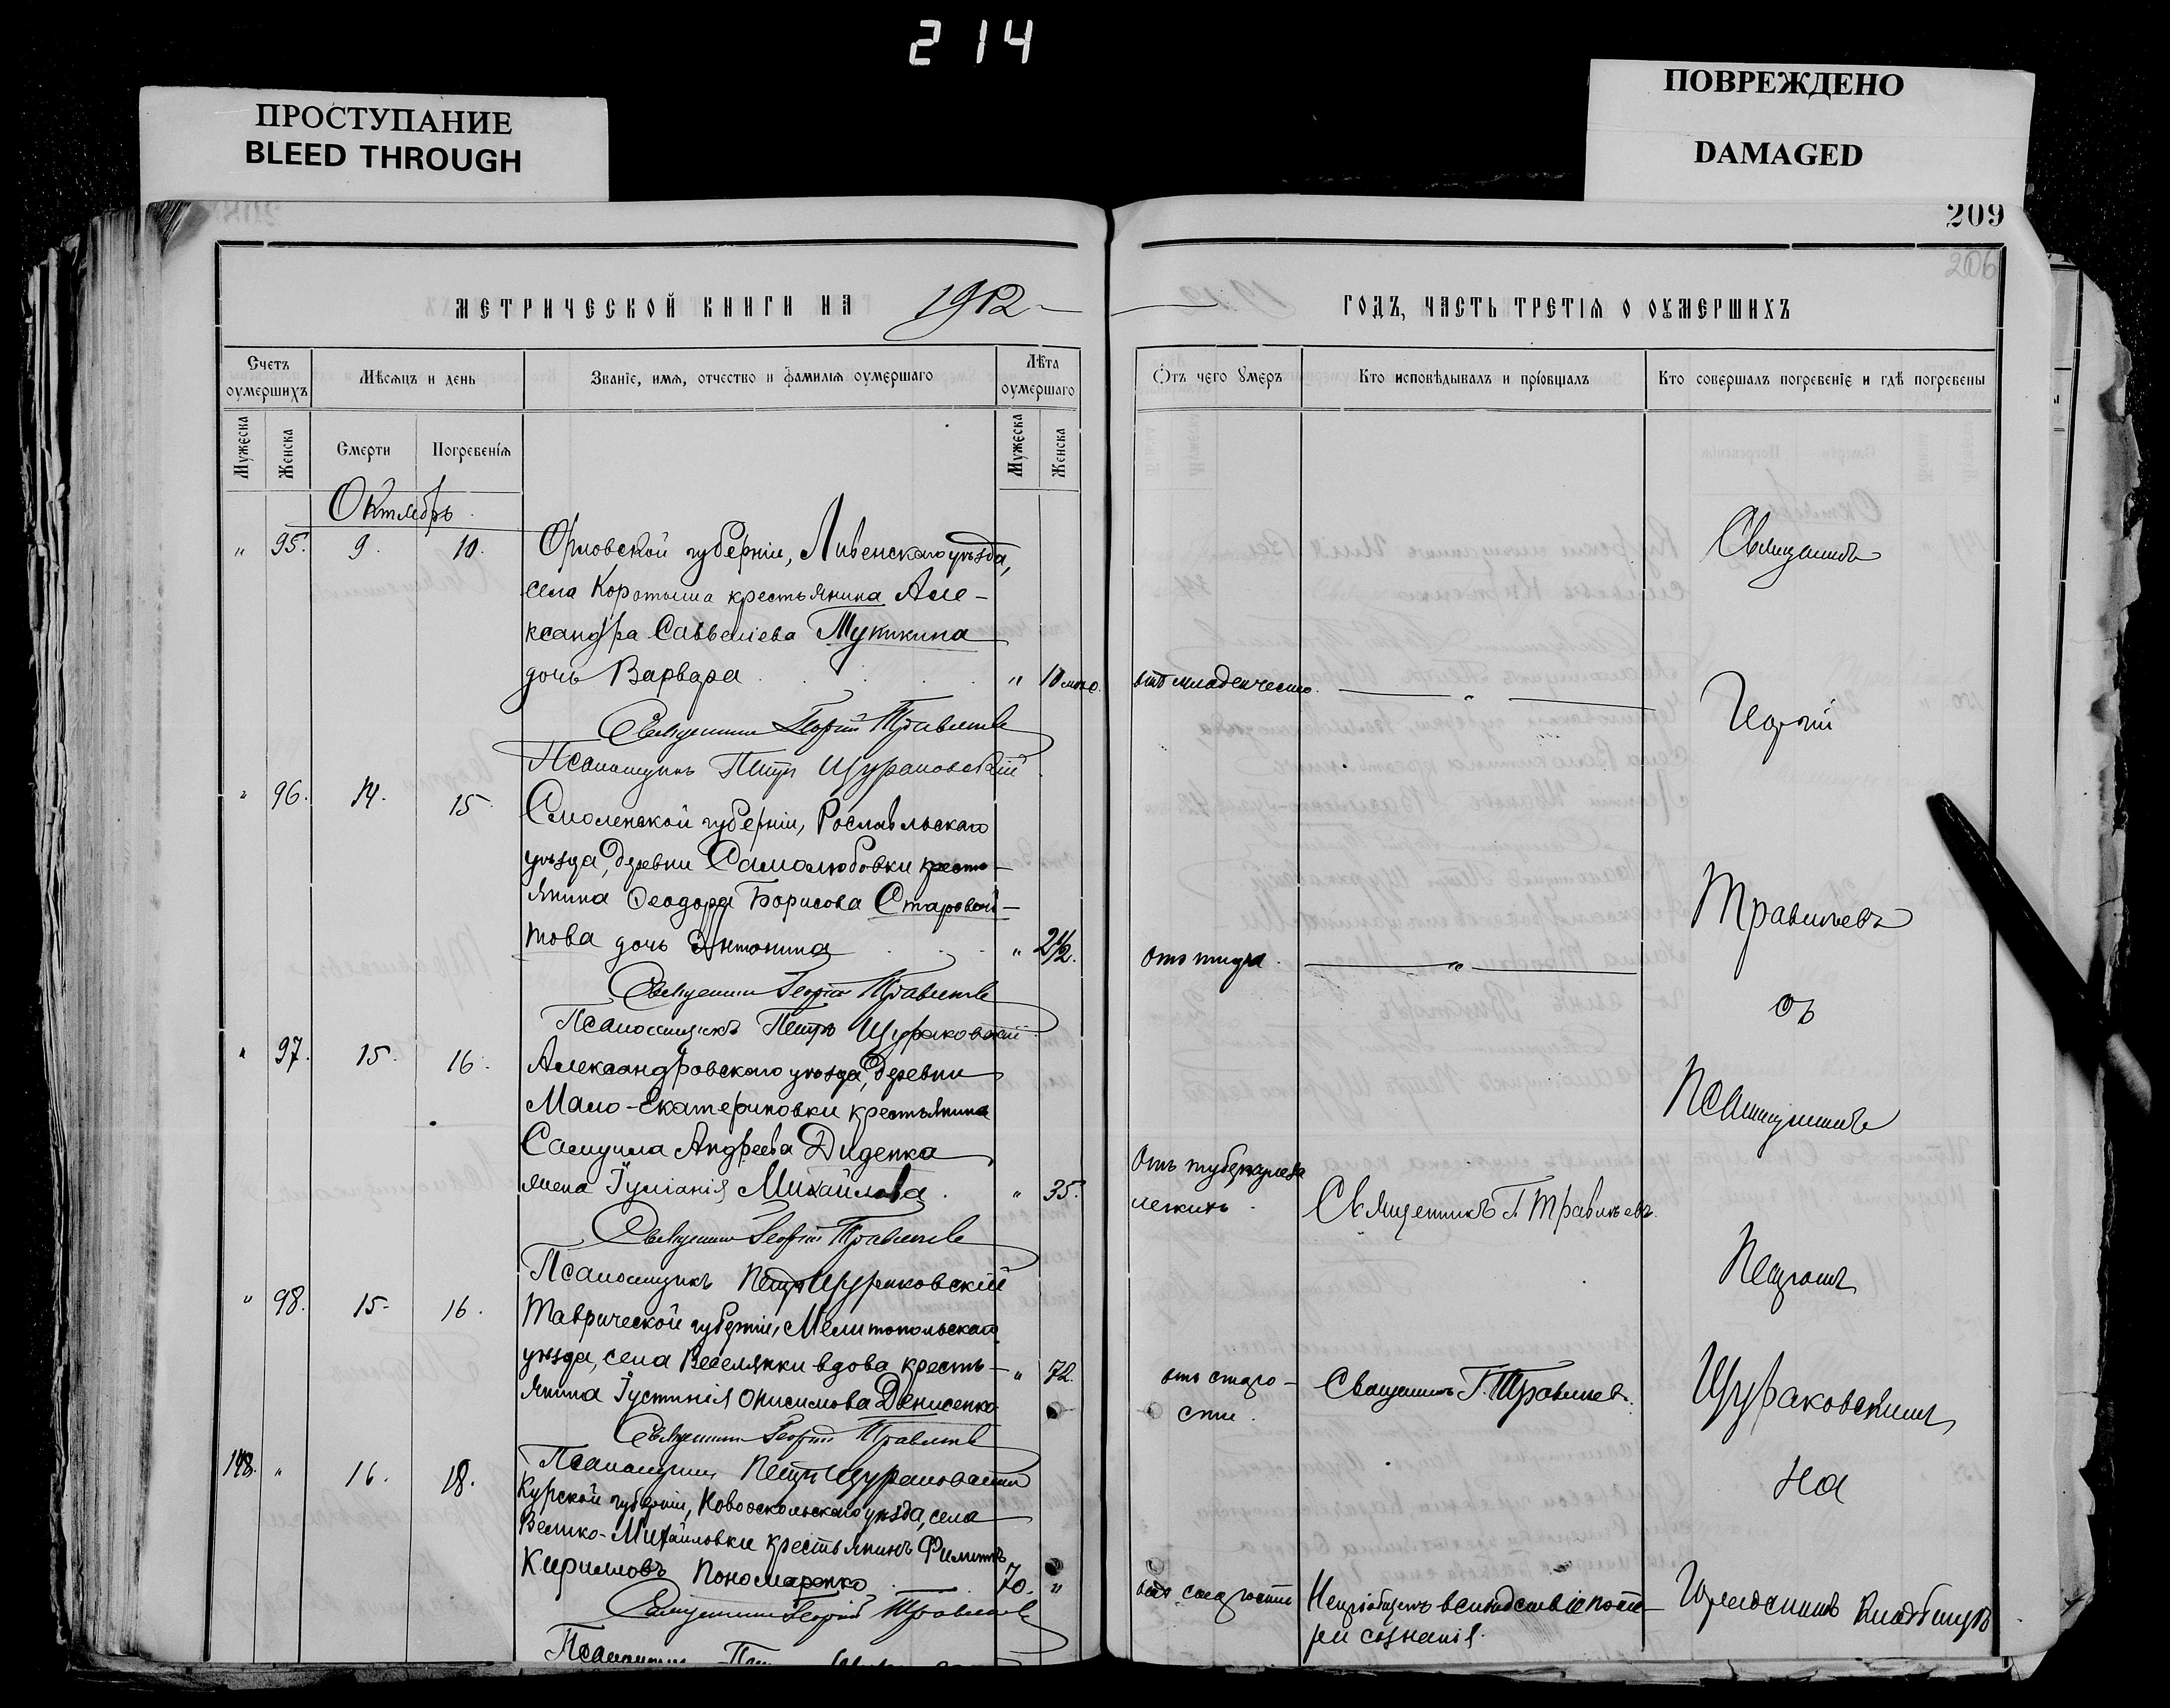 214
ПРОСТУПАНИЕ
BLEED THROUGH
ПОВРЕЖДЕНО
DAMAGED
209
206
МЕТРИЧЕСКОЙ КНИГИ НА 1912
ГОДЪ, ЧАСТЬ ТРЕТІЯ О ОУМЕРШИХЪ
Счетъ оумершихъ
Мѣсяцъ и день
Званіе, имя, отчество и фамилія оумершаго
Лѣта оумершаго
Отъ чего умеръ
Кто исповѣдывалъ и пріобщалъ
Кто совершалъ погребеніе и гдѣ погребены
Мужеска
Женска
Смерти
Погребенія
Мужеска
Женска
Октябрь
" 95. 9. 10. Орловской губерніи, Ливенскаго уѣзда,
села Коротыша крестьянина Але-
ксандра Савеліева
дочь Варвара " 10 отъ младенчества "
Священникъ Георгій Травиневъ
Псаломщикъ Петръ Щураковскій
" 96. 14. 15. Смоленской губерніи, Рославльскаго
уѣзда, деревни Самолюбовки кресть-
янина Ѳеодора Борисова Старовой-
това дочь Антонина " 2 1/2.
Священникъ Георгій Травиневъ
Псаломщикъ Петръ Щураковскій
" 97. 15. 16. Александровскаго уѣзда, деревни
Мало-Екатериновки крестьянина
Самуила Андреева Диденка
жена Іуліанія Михайлова " 35. Отъ туберкулеза
легкихъ. Священникъ Г. Травиневъ.
Священникъ Георгій Травиневъ
Псаломщикъ Петръ Щураковскій
" 98. 15. 16. Таврической губерніи, Мелитопольскаго
уѣзда, села Веселянки вдова кресть-
янина Іустинія Онисимова Денисенко " 72. отъ старо-
сти. Священникъ Г. Травиневъ.
Священникъ Георгій Травиневъ
Псаломщикъ Петръ Щураковскій
148. " 16. 18. Курской губерніи, Новооскольскаго уѣзда, села
Велико-Михайловки крестьянинъ Филиппъ
Кирилловъ Пономаренко 70. " отъ старости Непріобщенъ вслѣдствіе поте-
ри сознанія.
Священникъ Георгій Травиневъ
Псаломщикъ
Священникъ
Георгій
Травиневъ
съ
Псаломщикомъ
Петромъ
Щураковскимъ
на
кладбищѣ